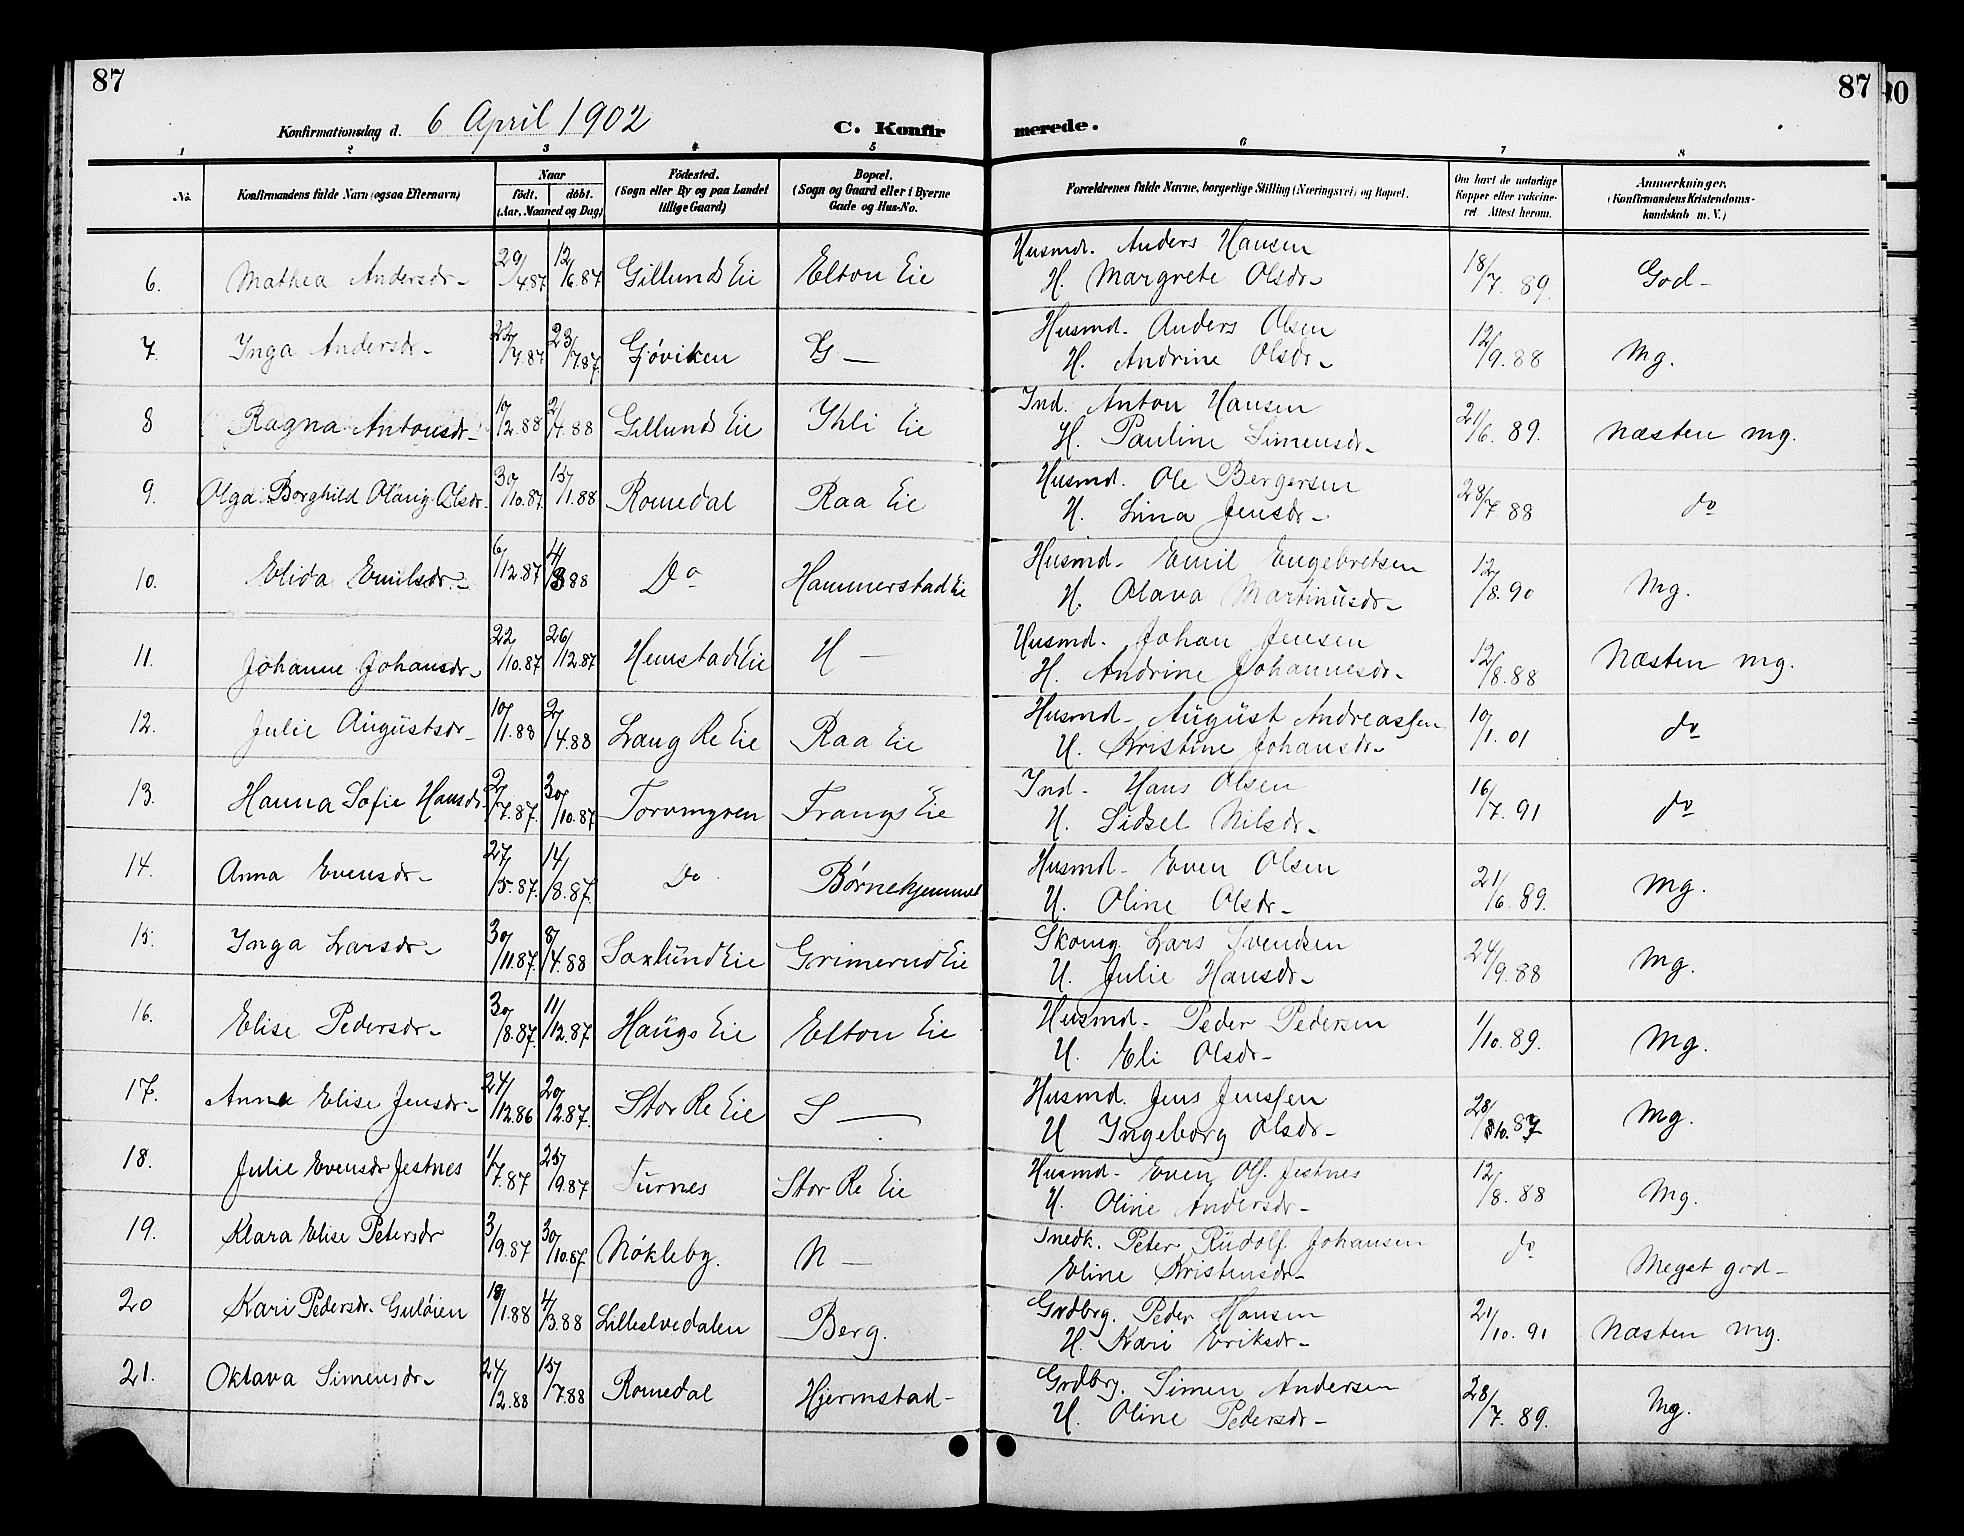 87
87
Konfirmationsdag d. 6 April 1902
C. Konfir
merede.
1 2 3 4 5 6 7 8
No.
Konfirmandens fulde Navn (ogsaa Efternavn)
Naar
født. døbt.
(Aar, Maaned og Dag)
Fødested.
(Sogn eller By og paa Landet
tillige Gaard)
Bopæl.
(Sogn og Gaard eller i Byerne
Gade og Hus-No.
Forældrenes fulde Navne, borgerlige Stilling (Næringsvei) og Bopæl.
Om havt de naturlige
Kopper eller vakcine-
ret Attest herom.
Anmærkninger.
(Konfirmandens Kristendoms-
kundskab m. V.)
6. Mathea Andersdr- 29/4.87 12/6.87 Gillunds Eie Elton Eie Husmd. Anders Hansen 18/7.89. God-
H. Margrete Olsdr-
7. Inga Andersdr- 22/7.87 23/7.87. Gjøviken G- Husmd. Anders Olsen 12/9.88 Mg.
H. Andrine Olsdr-
8 Ragna Antonsdr- 10/2.88 2/4.88 Gillunds Eie Ihli Eie Ind. Anton Hansen 21/6.89. Næsten mg.
H. Pauline Simensdr-
9. Olga Borghild Olaug Olsdr. 30/10.87 15/1.88 Romedal Raa Eie Husmd. Ole Bergersen 28/7.88 do
H. Lina Jensdr-
10. Elida Emilsdr- 6/12.87 4/3 88 Do Hammerstad Eie Husmd- Emil Engebretsen 12/8.90 Mg.
H. Olava Martinusdr-
11. Johanne Johansdr- 22/10.87 26/12.87 Hemstad Eie H- Husmd. Johan Jensen 12/8.88 Næsten mg.
H. Andrine Johannesdr-
12. Julie Augustsdr- 10/1.88 2/4.88 Lang Re Eie Raa Eie Husmd- August Andreassen 10/1.01 do
H. Kristine Johansdr-
13. Hanna Sofie Hansdr. 2/7.87. 30/10.87 Torvmyren Frangs Eie Ind- Hans Olsen 16/7.91 do
H. Sidsel Nilsdr-
14. Anna Evensdr- 27/5.87. 14/8.87. Do Børnehjemmet Husmd- Even Olsen 21/6.89. Mg.
H. Oline Olsdr-
15. Inga Larsdr- 30/11.87 8/4.88 Saxlund Eie Grimerud Eie Skomg. Lars Svendsen 24/9.88 Mg.
H. Julie Hansdr-
16. Elise Pedersdr- 30/8.87. 11/12.87 Haugs Eie Elton Eie Husmd- Peder Pedersen 1/10.89. Mg.
H. Eli Olsdr-
17. Anna Elise Jensdr- 24/12.86 20/2.87. Stor Re Eie S- Husmd. Jens Jenssen 28/10.87 Mg.
H Ingeborg Olsdr-
18. Julie Evensdr Jestnes 1/7.87 25/9.87 Furnes Stor Re Eie Husmd- Even Ols. Jestnes 12/8.88 Mg.
H. Oline Andersdr-
19. Klara Elise Petersdr 3/9.87 30/10.87 Nøkleby. N- Snedk. Peter Rudolf Johansen do Meget god-
Eline Kristensdr-
20 Kari Pedersdr. Guløien 18/1.88 4/3.88 Lilleelvedalen Berg. Grdbrg. Peder Hansen 21/10.91 Næsten mg.
H. Kari Eriksdr-
21. Oktava Simensdr- 24/2.88 15/7.88 Romedal Hjermstad- Grdbrg. Simen Andersen 28/7.89. Mg.
H. Oline Pedersdr-